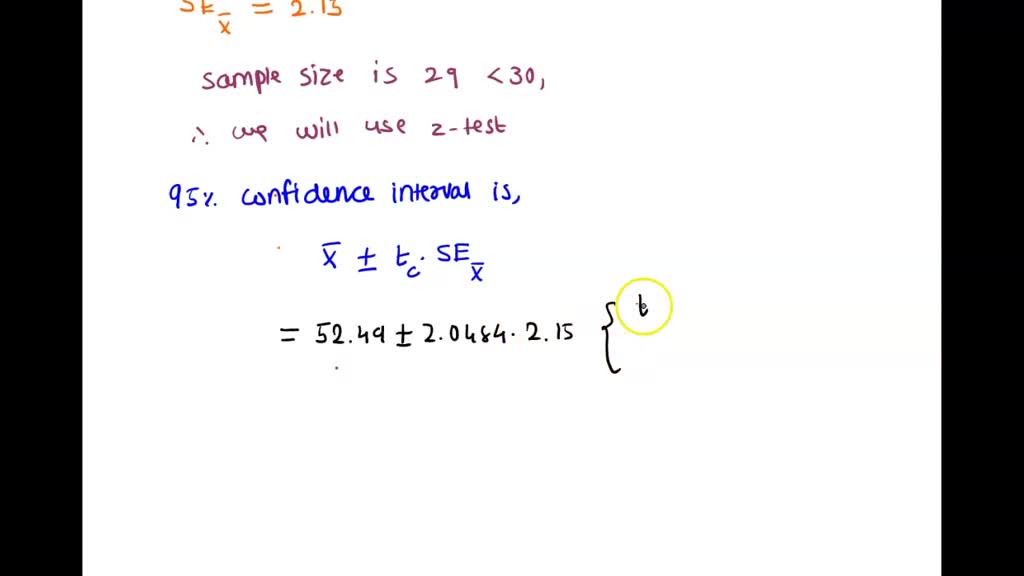 SE x̄ = 2.15
sample size is 29 < 30,
∴ we will use z-test
95% confidence interval is,
x̄ ± t_c · SE_x̄
= 52.49 ± 2.0484 · 2.15 { t